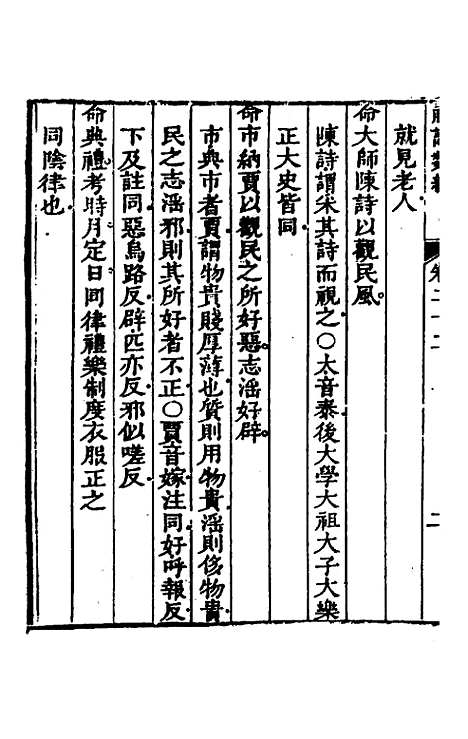 卷二十二 二
就見老人
命大師陳詩以觀民風
陳詩謂采其詩而視之〇太音泰後大学大祖大子大樂
正大史皆同
命市納賈以觀民之所好惡志淫好辟
市典市者賈謂物貴賤厚薄也質則用物貴淫則侈物貴
民之志淫邪則其所好者不正〇賈音嫁注同好呼報反
下及註同惡烏路反辟匹亦反邪似嗟反
命典禮考時月定日同律禮樂制度衣服正之
同陰律也